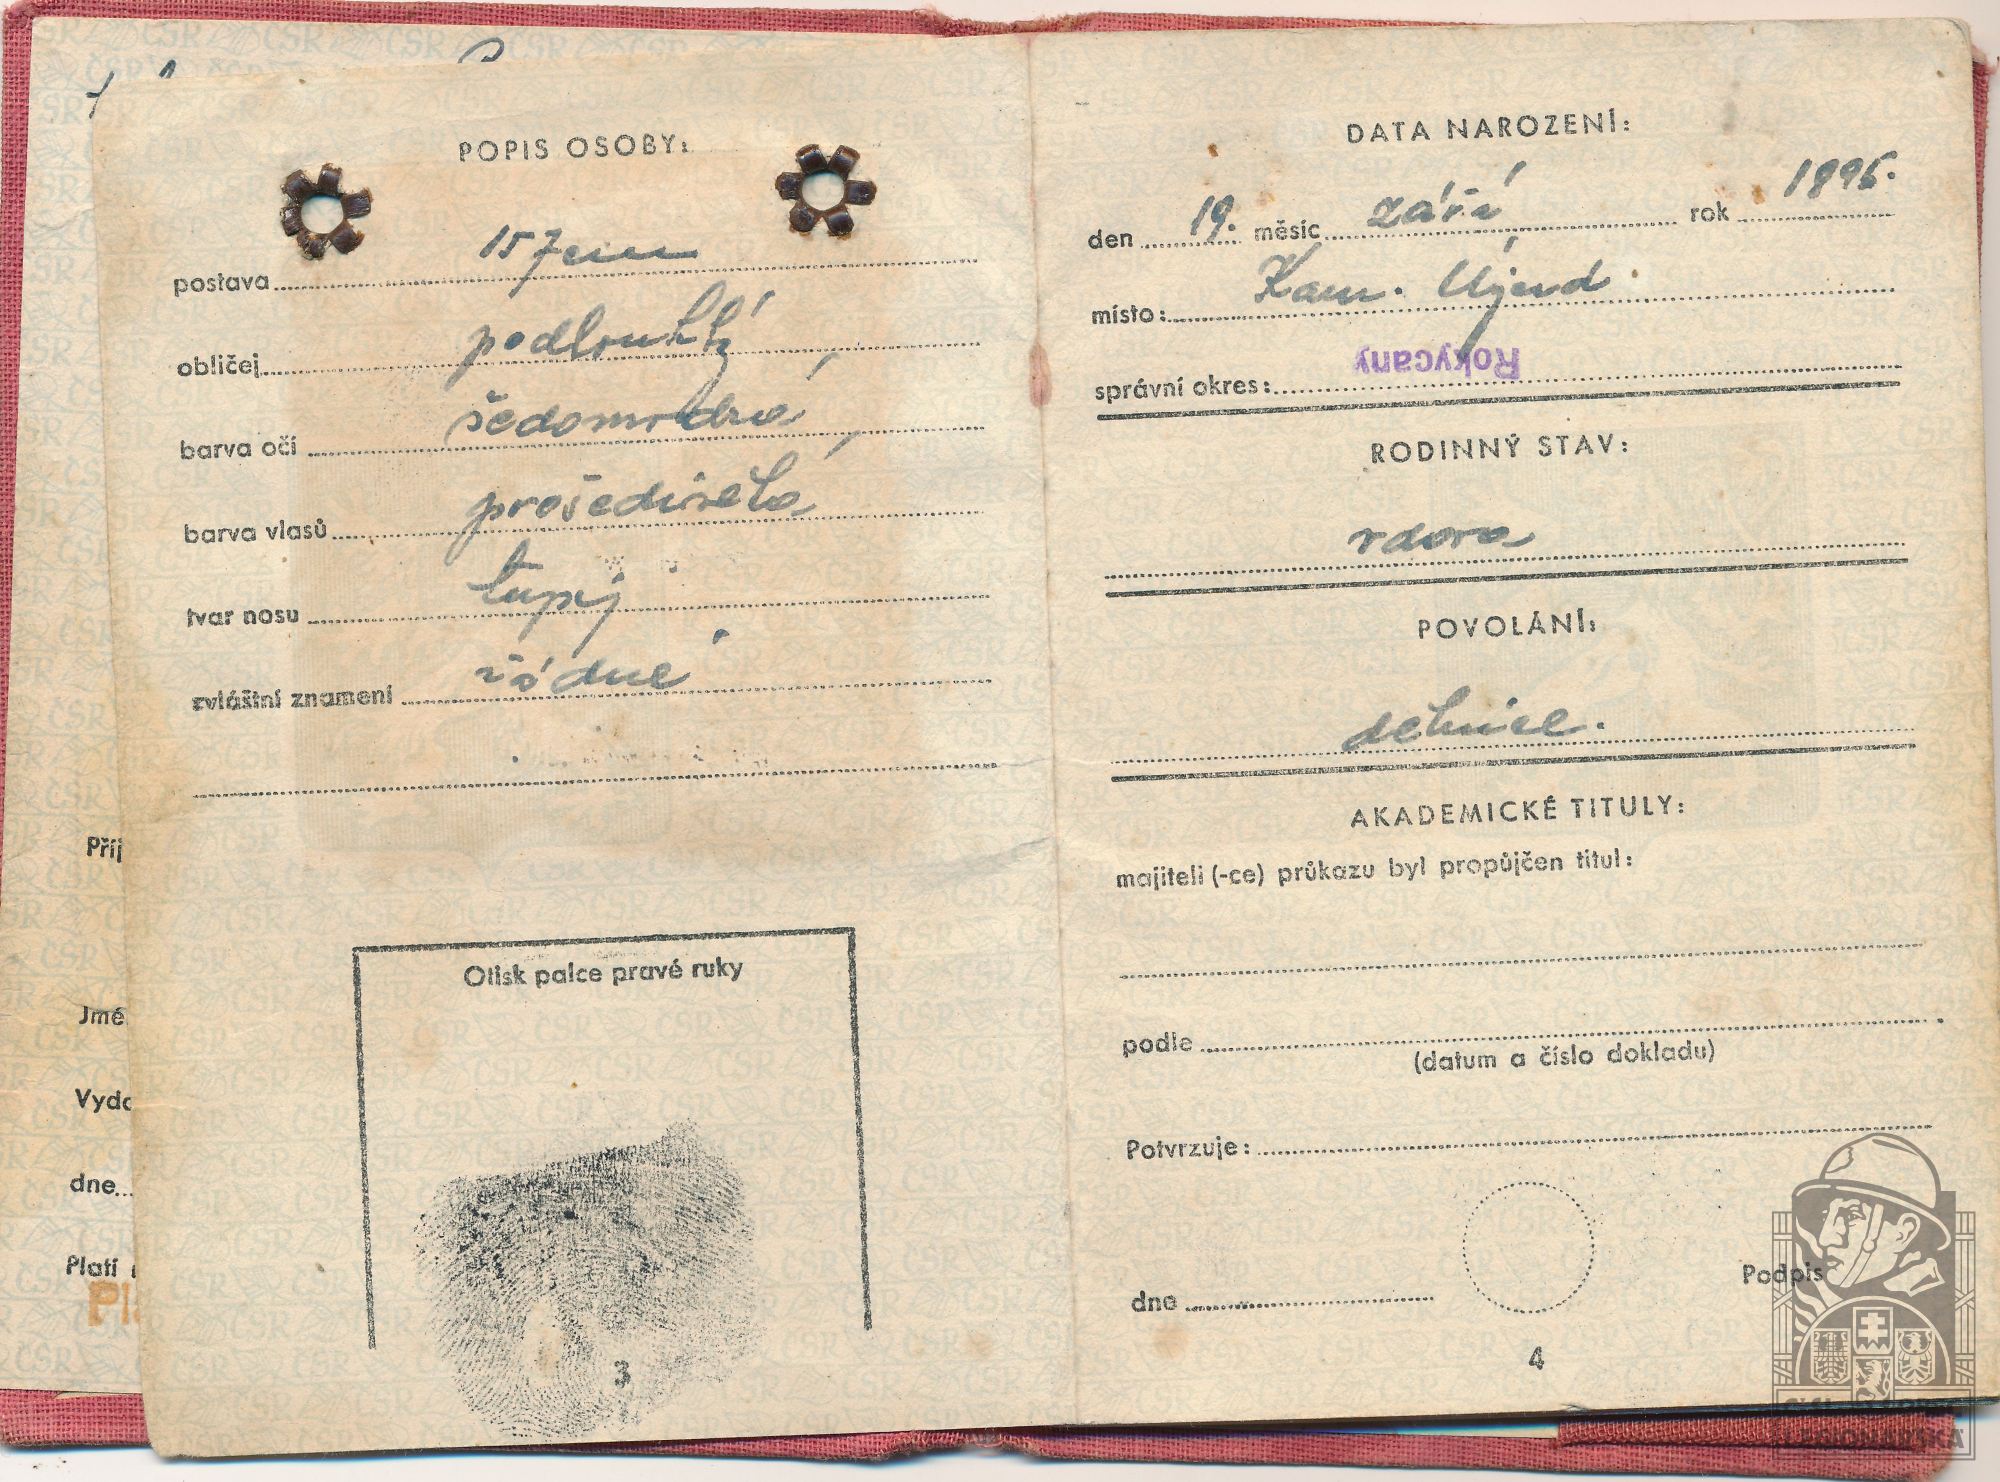 POPIS OSOBY:
postava 157 cm
obličej podlouhlý
barva očí šedomodrá
barva vlasů prošedivělá
tvar nosu tupý
zvláštní znamení žádné
Otisk palce pravé ruky
3
Příj
Jmé
Vyd
dne
Platí
Pl
DATA NAROZENÍ:
den 19. měsíc září rok 1896.
místo: Kam. Újezd
správní okres: Rokycany
RODINNÝ STAV:
vdova
POVOLÁNÍ:
dělnice.
AKADEMICKÉ TITULY:
majiteli (-ce) průkazu byl propůjčen titul:
podle
(datum a číslo dokladu)
Potvrzuje:
dne
Podpis
4
LEGIONÁŘSKÁ